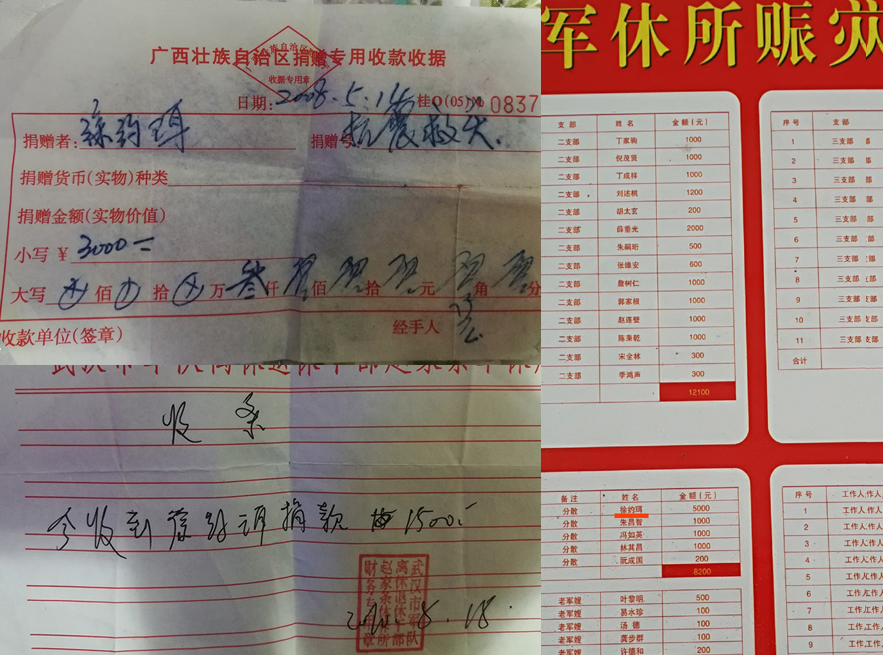 广西壮族自治区捐赠专用收款收据
收据专用章
日期：2008.5.14 桂O(05)№ 0837
捐赠者：徐约珥 捐赠 抗震救灾.
捐赠货币(实物)种类
捐赠金额(实物价值)
小写 ￥3000
大写 佰 拾 万 叁仟 佰 拾 元 角 分
收款单位(签章) 经手人
收条
今收到徐约珥捐款 1500
武汉市军队
离休退休干部
赵家条休养所
财务专用章
军休所赈灾
支部 姓名 金额(元)
二支部 丁家驹 1000
二支部 倪茂贤 1000
二支部 丁成祥 1000
二支部 刘述桃 1200
二支部 胡太玄 200
二支部 薛垂光 2000
二支部 朱嗣珩 500
二支部 张维安 600
二支部 詹树仁 1000
二支部 郭家根 1000
二支部 赵莲璧 1000
二支部 陈秉乾 1000
二支部 宋全林 300
二支部 李鸿声 300
12100
序号 支部
1 三支部
2 三支部
3 三支部
4 三支部
5 三支部
6 三支部
7 三支部
8 三支部
9 三支部
10 三支部
11 三支部
合计
备注 姓名 金额(元)
分散 徐约珥 5000
分散 朱昌智 1000
分散 冯如英 1000
分散 林其昌 1000
分散 阮成国 200
8200
老军嫂 叶黎明 500
老军嫂 易水珍 100
老军嫂 汤德 100
老军嫂 龚步群 100
老军嫂 许德和 200
序号 工作人
1 工作人
2 工作人
3 工作人
4 工作人
5 工作人
6 工作人
7 工作人
8 工作
9 工作人